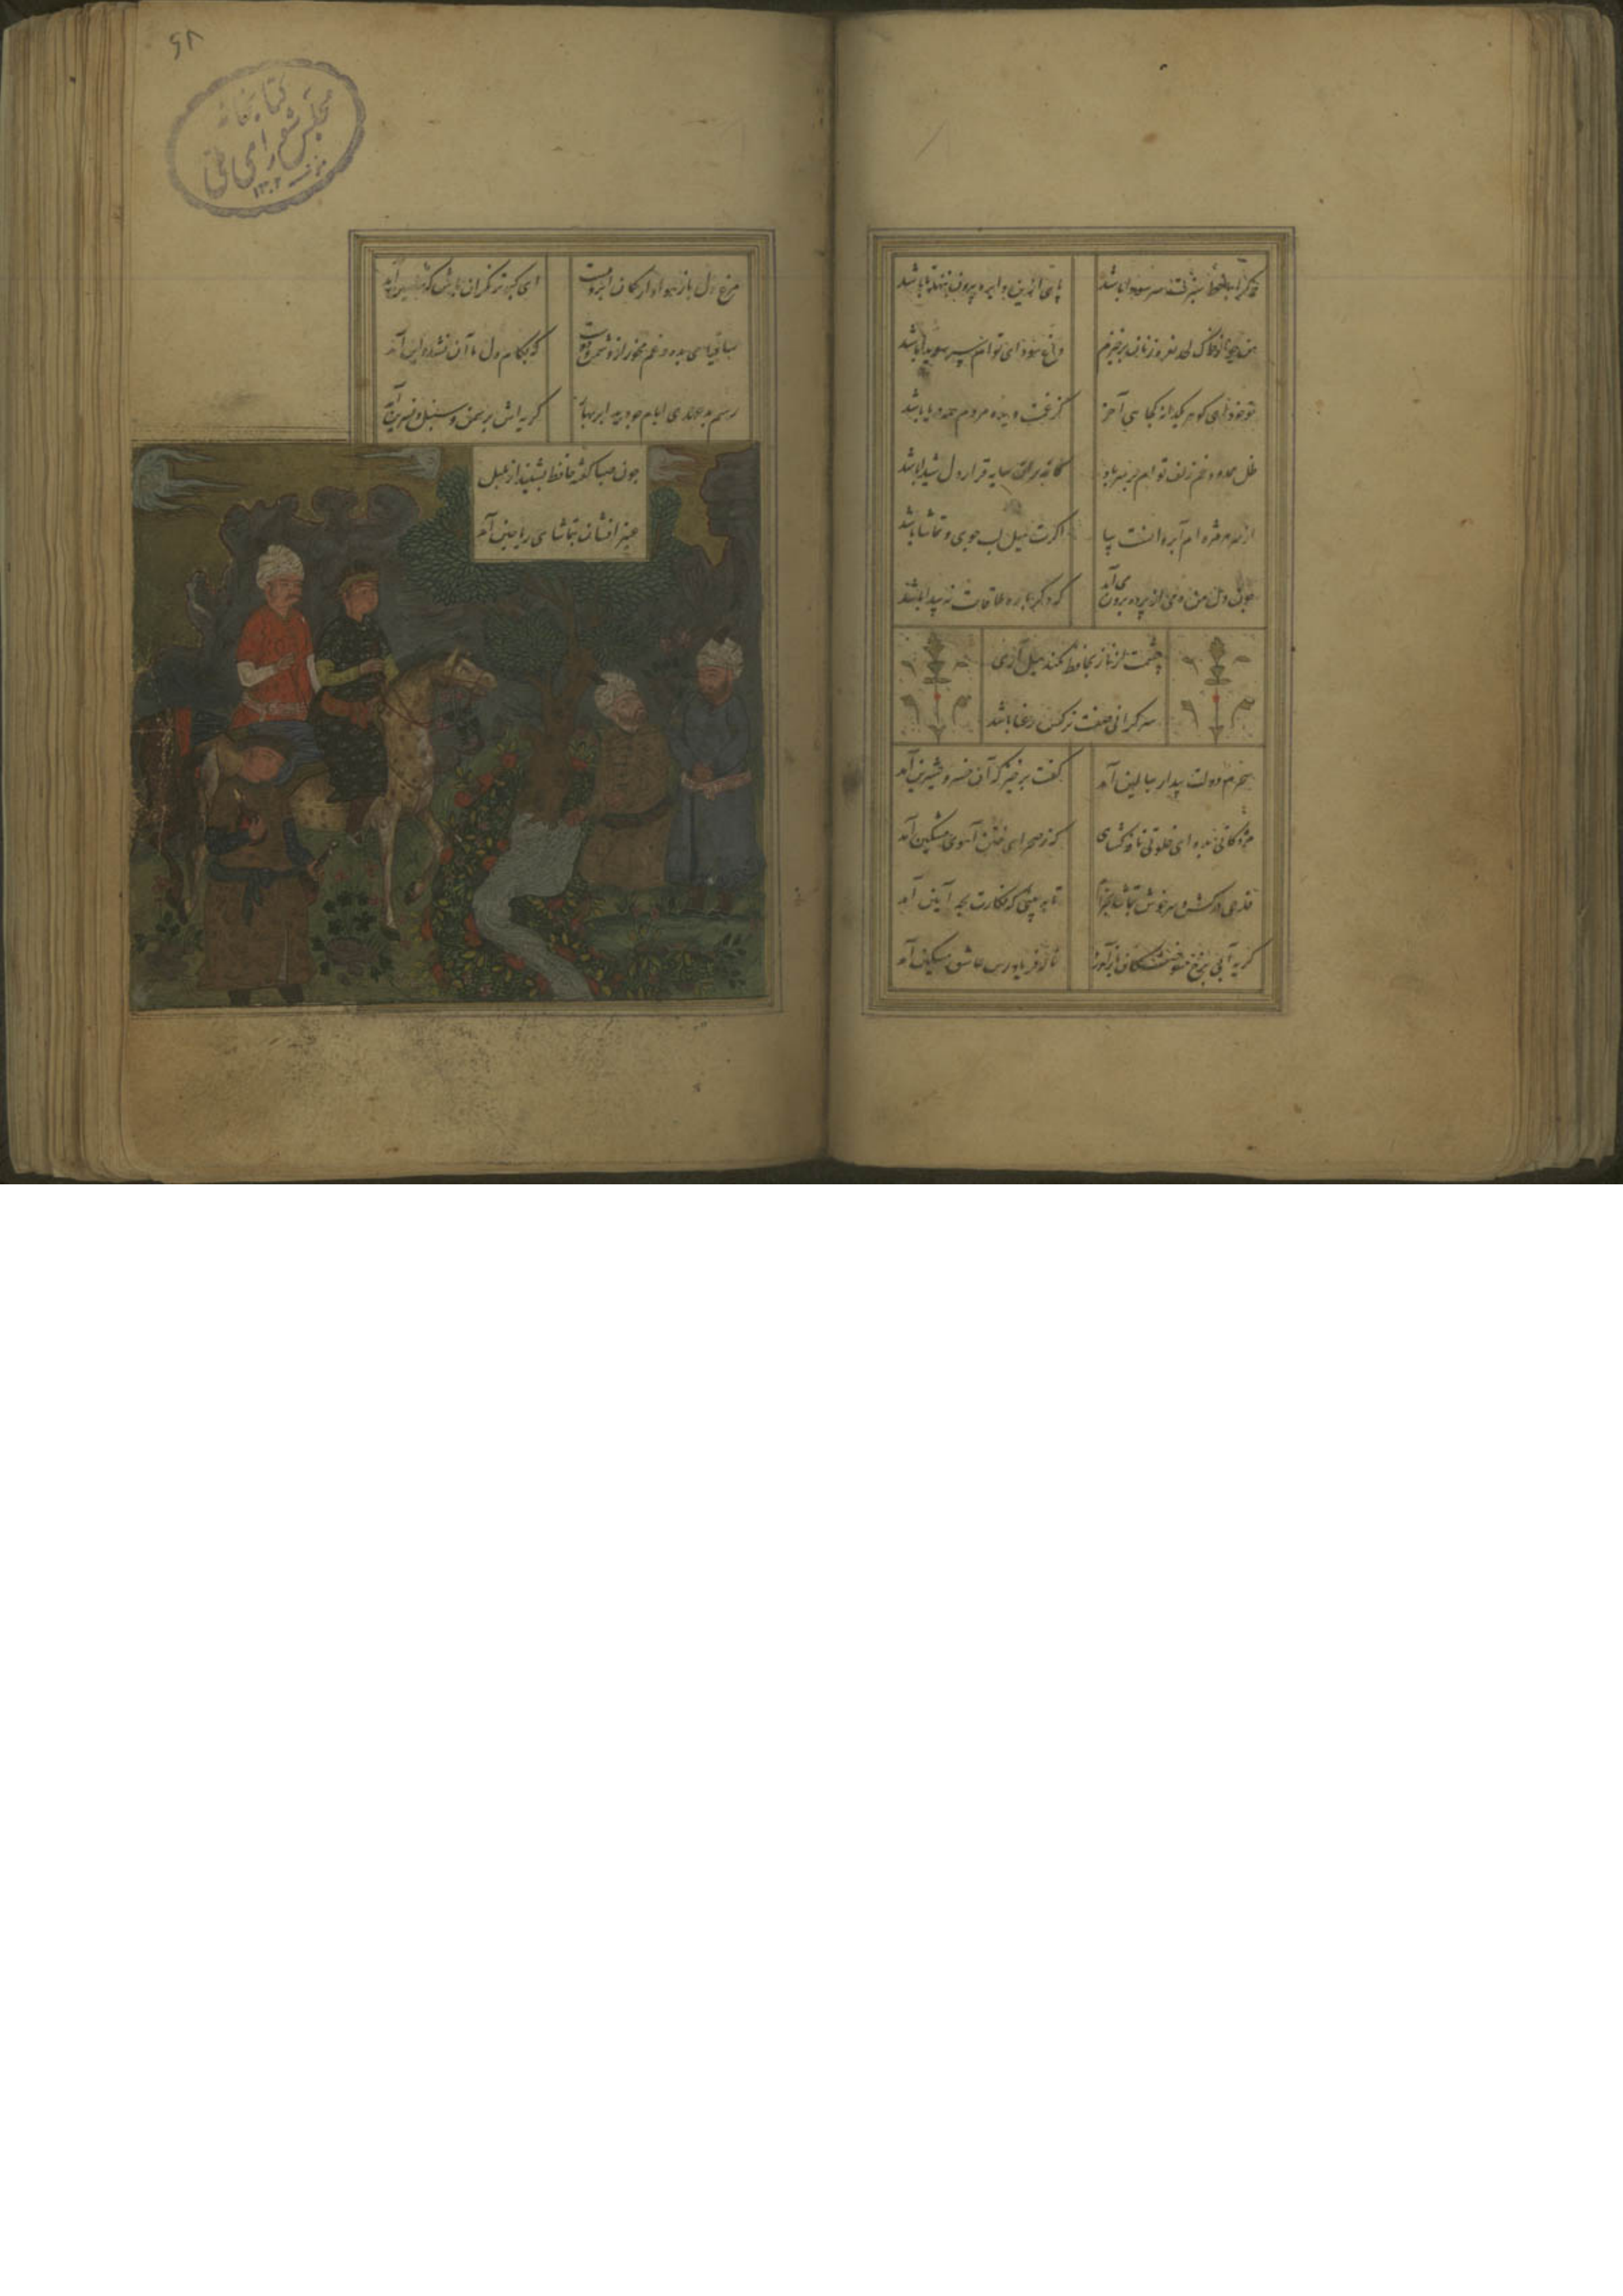 هر کرا با خط سبزت سر سودا باشد
پای ازین دایره بیرون ننهد تا باشد
من چو از خاک لحد نعره زنان برخیزم
داغ سودای توام سر سویدا باشد
تو خود ای گوهر یکدانه کجایی آخر
کز غمت دیده مردم همه دریا باشد
ظل ممدود خم زلف توام بر سر باد
کاندرین سایه قرار دل شیدا باشد
از بن هر مژه ام آب روانست بیا
اگرت میل لب جوی و تماشا باشد
چون دل من دمی از پرده برون می آید
که دگرباره ملاقات نه پیدا باشد
چشمت از ناز بحافظ نکند میل آری
سرگرانی صفت نرگس رعنا باشد
سحرم دولت بیدار ببالین آمد
گفت برخیز که آن خسرو شیرین آمد
مژدگانی بده ای خلوتی نافه گشای
که ز صحرای ختن آهوی مشکین آمد
قدحی درکش و سرخوش بتماشا بخرام
تا ببینی که نگارت بچه آیین آمد
گریه آبی برخ سوختگان باز آورد
ناله فریادرس عاشق مسکین آمد
۶۸
کتابخانه
مجلس شورای ملی
۱۳۰۲
مرغ دل باز هوادار کمان ابرویست
ای کبوتر نگران باش که شاهین آمد
ساقیا می بده و غم مخور از دشمن و دوست
که بکام دل ما آن بشد و این آمد
رسم بدعهدی ایام چو دید ابر بهار
گریه اش بر سمن و سنبل و نسرین آمد
چون صبا گفته حافظ بشنید از بلبل
عنبر افشان بتماشای ریاحین آمد